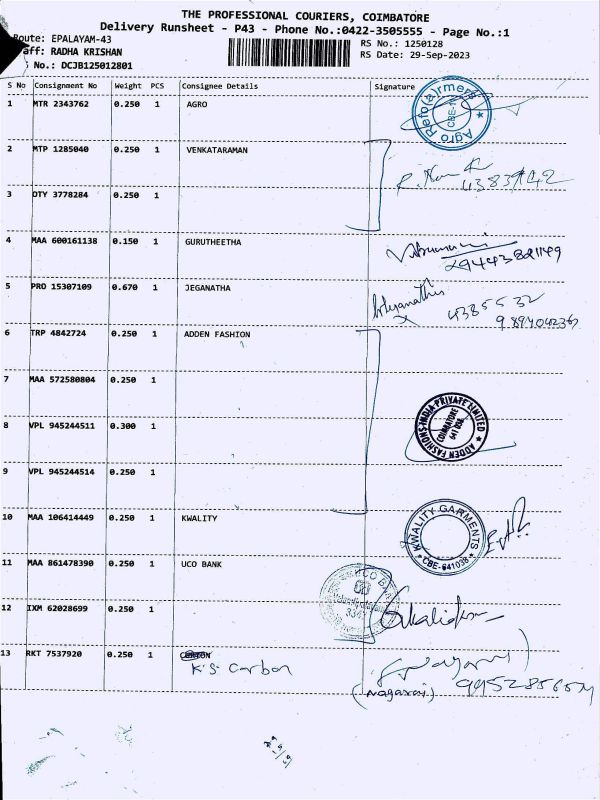 THE PROFESSIONAL COURIERS, COIMBATORE
Delivery Runsheet - P43 - Phone No.:0422-3505555 - Page No.:1
Route: EPALAYAM-43
RS No.: 1250128
aff: RADHA KRISHAN
RS Date: 29-Sep-2023
No.: DCJB125012801
S No Consignment No Weight PCS Consignee Details Signature
1 MTR 2343762 0.250 1 AGRO
Agro Refo(a)rmers
CBE-
2 MTP 1285040 0.250 1 VENKATARAMAN
3 DTY 3778284 0.250 1
4 MAA 600161138 0.150 1 GURUTHEETHA
5 PRO 15307109 0.670 1 JEGANATHA
4385532
6 TRP 4842724 0.250 1 ADDEN FASHION
7 MAA 572580804 0.250 1
8 VPL 945244511 0.300 1
ADDEN FASHIONS INDIA PRIVATE LIMITED
COIMBATORE
9 VPL 945244514 0.250 1
10 MAA 106414449 0.250 1 KWALITY
KWALITY GARMENTS
CBE-641038
11 MAA 861478390 0.250 1 UCO BANK
UCO BANK
12 IXM 62028699 0.250 1
13 RKT 7537920 0.250 1
K.S. Carbon
(Nagaraj)